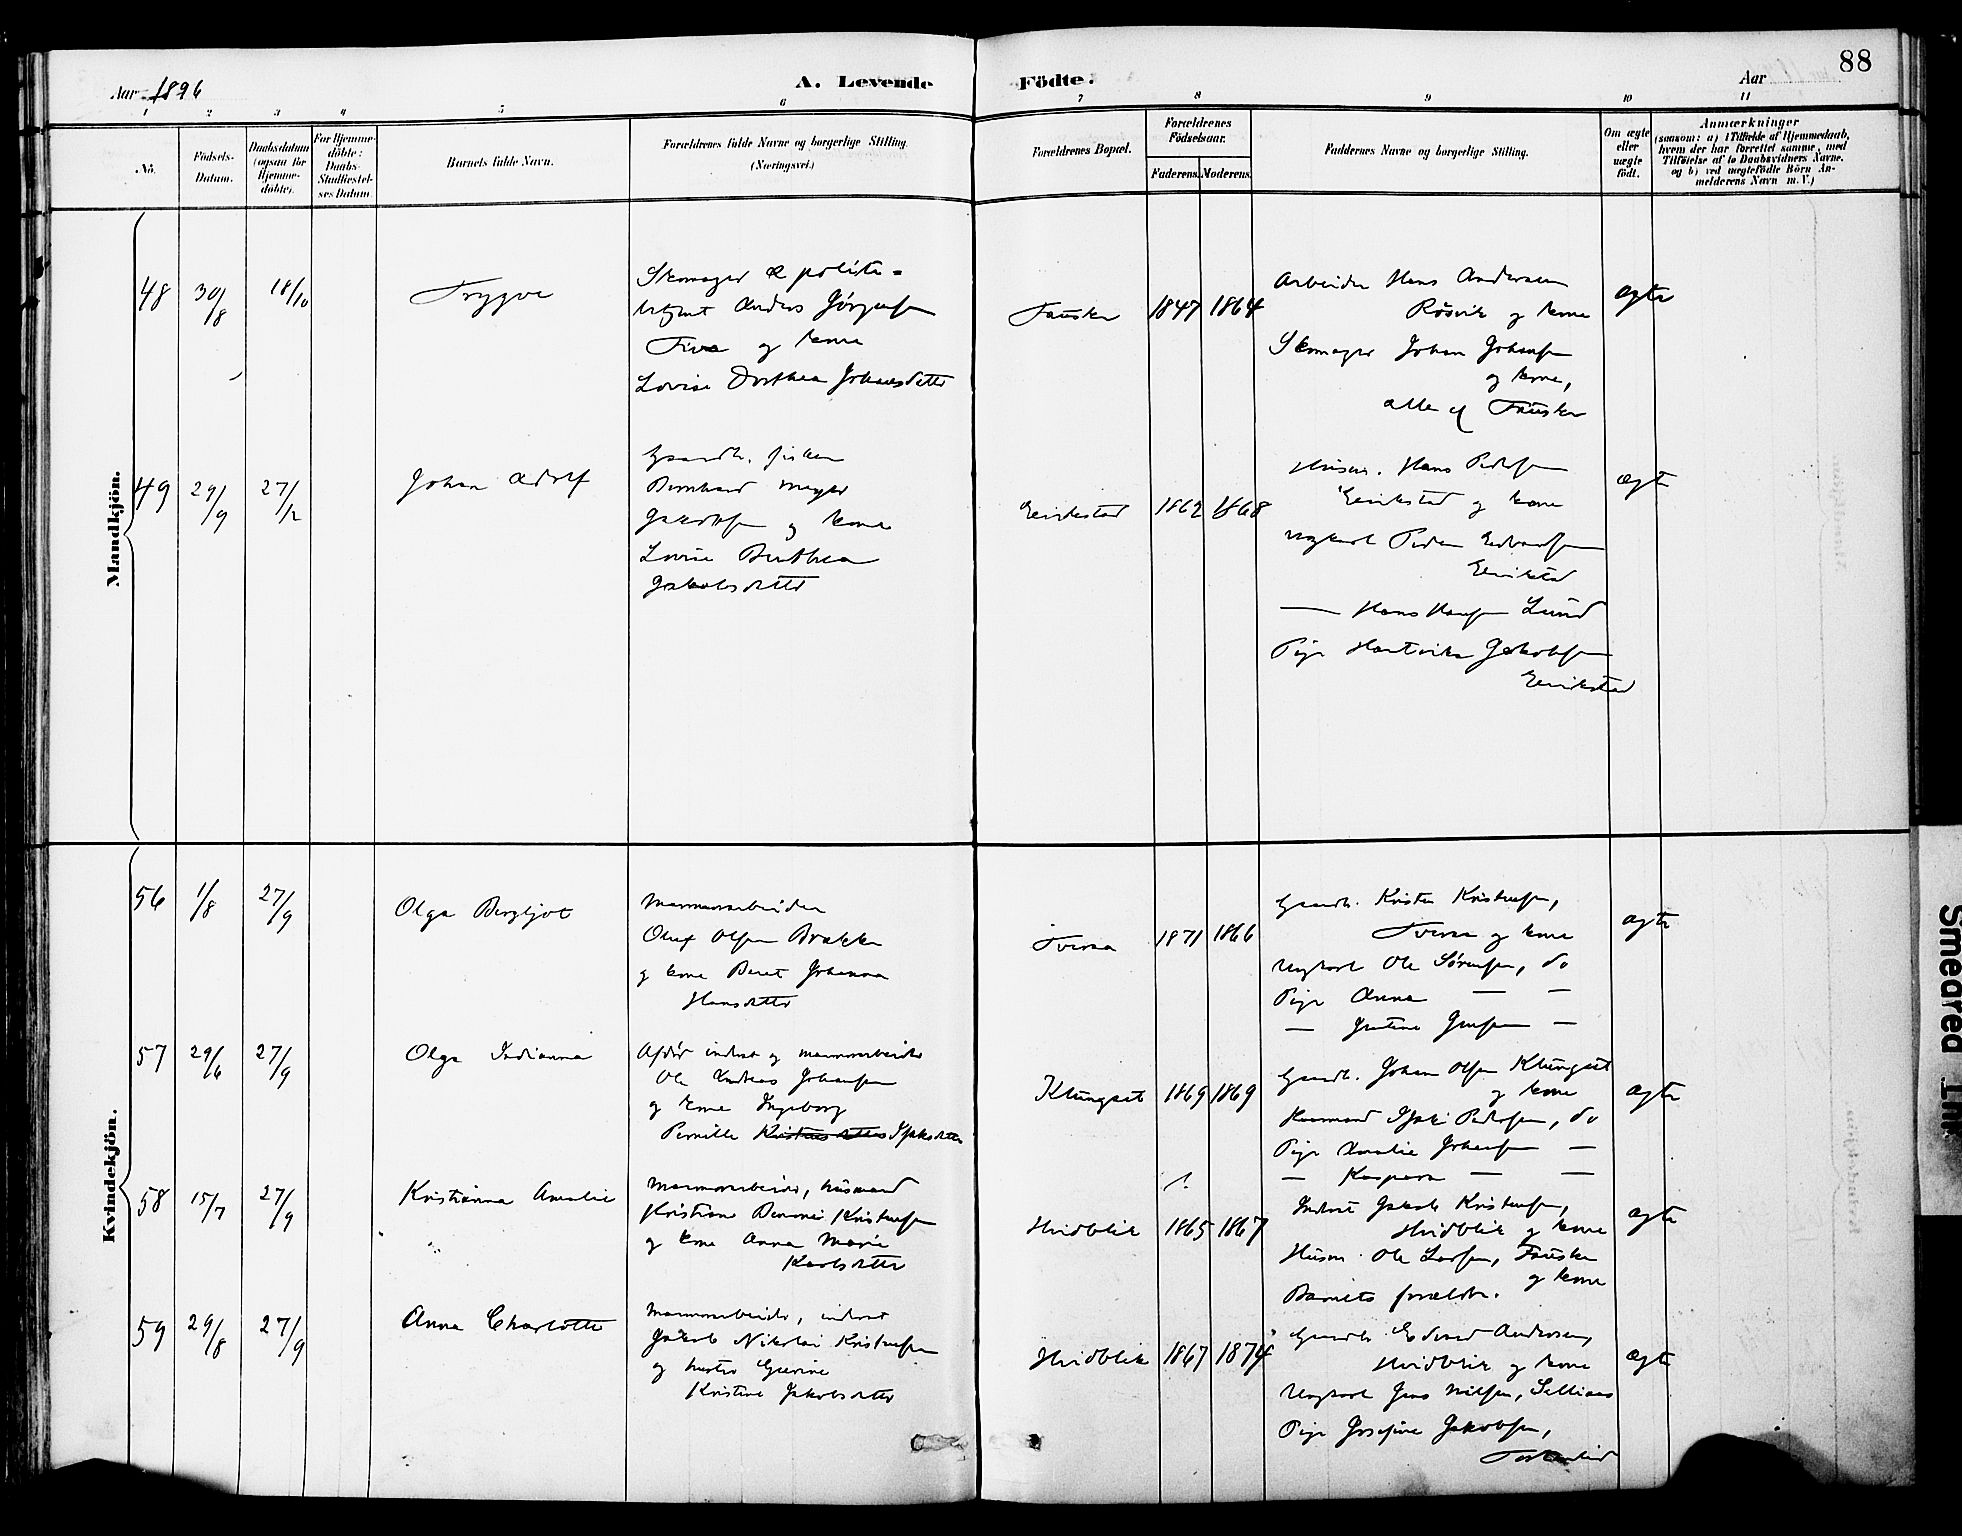 88
Aar 1896
A. Levende Födte.
Aar
1 2 3 4 5 6 7 8 9 10 11
No.
Födsels-Datum.
Daabsdatum (ogsaa for Hjemmedöbte).
For Hjemmedöbte: Daabs-Stadfæstelses Datum
Barnets fulde Navn.
Forældrenes fulde Navne og borgerlige Stilling. (Næringsvei.)
Forældrenes Bopæl.
Forældrenes Födselsaar.
Faderens. Moderens.
Faddernes Navne og borgerlige Stilling.
Om ægte eller uægte födt.
Anmærkninger
(saasom: a) i Tilfælde af Hjemmedaab,
hvem der har forrettet samme, med
Tilföielse af to Daabsvidners Navne.
og b) ved uægtefödte Börn Anmelderens Navn m. V.)
Mandkjön.
48 30/8 18/10 Trygve
Skomager & politi-
betjent Anders Jörgensen
Tive og kone
Lovise Dorthea Johansdatter
Fauske 1847 1864
Arbeider Hans Andersen
Røsvik og kone
Skomager Johan Johansen
og kone,
alle af Fauske
ægte
49 29/9 27/12 Johan Adolf
Gaardb. fisker
Bernhard Meyer
Jakobsen og kone
Lovise Berthea
Jakobsdatter
Erikstad 1862 1868
Husm. Hans Pedersen
Erikstad og kone
Ungkarl Peder Edvardsen
Erikstad
— Hans Hansen Lund
Pige Hartvika Jakobsen
Erikstad
ægte
Kvindekjön.
56 1/8 27/9 Olga Bergljot
Marmorarbeider
Oluf Olsen Brække
og kone Beret Johanna
Hansdatter
Tveraa 1871 1866
Gaardb. Krister Kristensen,
Tveraa og kone
Ungkarl Ole Sørensen, do
Pige Anna — —
— Jensen —
ægte
57 29/6 27/9 Olga Indianna
inderst og marmorarbeider
Ole Andreas Johansen
og kone Ingeborg
Pernille Kristensdatter Isaksdatter
Klungset 1869 1869
Gaardb. Johan Olsen Klungset
og kone
Pedersen, do
Pige Amalie Johansen —
— Kaspara — —
ægte
58 15/7 27/9 Kristianna Amalie
Marmorarbeider, husmand
Kristian Kristensen
og kone Anna Marie
Karlsdatter
Hvidblik 1865 1867
Inderst Jakob Kristensen,
Hvidblik og kone
Husm. Ole Larsen, Fauske
og kone
Barnets forældre.
ægte
59 29/8 27/9 Anna Charlotte
Marmorarbeider, inderst
Jakob Nikolai Kristensen
og hustru Gurine
Kristine Jakobsdatter
Hvidblik 1867 1874
Gaardb. Edvard Andersen,
Hvidblik og kone
Ungkarl Jens Nilsen,
Pige Josefine Jakobsen,
ægte
Smeared Ink